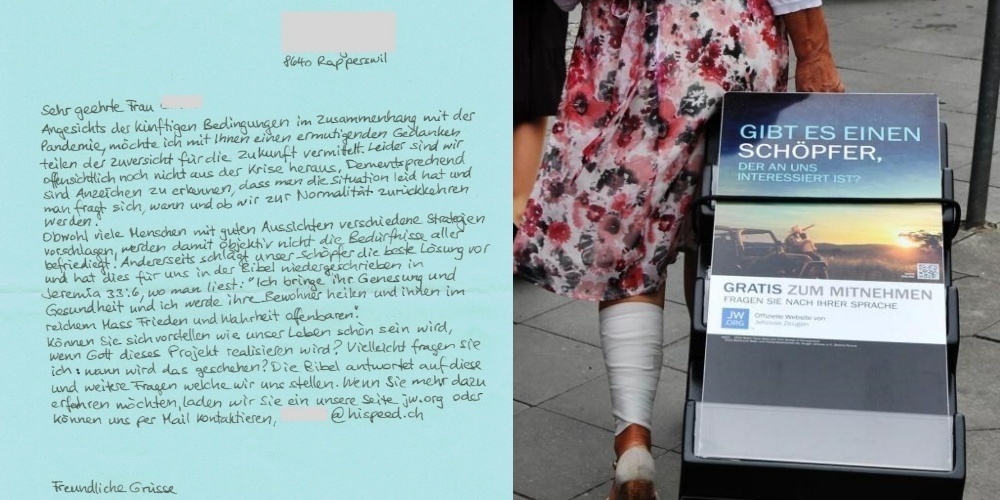 8640 Rapperswil
Sehr geehrte Frau
Angesichts der künftigen Bedingungen im zusammenhang mit der
Pandemie, möchte ich mit Ihnen einen ermutigenden Gedanken
teilen der zuversicht für die Zukunft vermittelt. Leider sind wir
offensichtlich noch nicht aus der Krise heraus. Dementsprechend
sind Anzeichen zu erkennen, dass man die situation leid hat und
man fragt sich, wann und ob wir zur Normalität zurückkehren
werden.
Obwohl viele Menschen mit guten Aussichten verschiedene Strategien
vorschlagen, werden damit objektiv nicht die Bedürfnisse aller
befriedigt! Andererseits schlägt unser Schöpfer die beste Lösung vor
und hat dies für uns in der Bibel niedergeschrieben in
Jeremia 33:6, wo man liest: "Ich bringe ihr Genesung und
Gesundheit und ich werde ihre Bewohner heilen und ihnen im
reichem Mass Frieden und Wahrheit offenbaren."
Können Sie sich vorstellen wie unser Leben schön sein wird,
wenn Gott dieses Projekt realisieren wird? Vielleicht fragen sie
ich: wann wird das geschehen? Die Bibel antwortet auf diese
und weitere Fragen welche wir uns stellen. Wenn Sie mehr dazu
erfahren möchten, laden wir Sie ein unsere seite jw.org oder
können uns per Mail kontaktieren, @hispeed.ch
Freundliche Grüsse
GIBT ES EINEN
SCHÖPFER,
DER AN UNS
INTERESSIERT IST?
GRATIS ZUM MITNEHMEN
FRAGEN SIE NACH IHRER SPRACHE
JW
.ORG
Offizielle Website von
Jehovas Zeugen